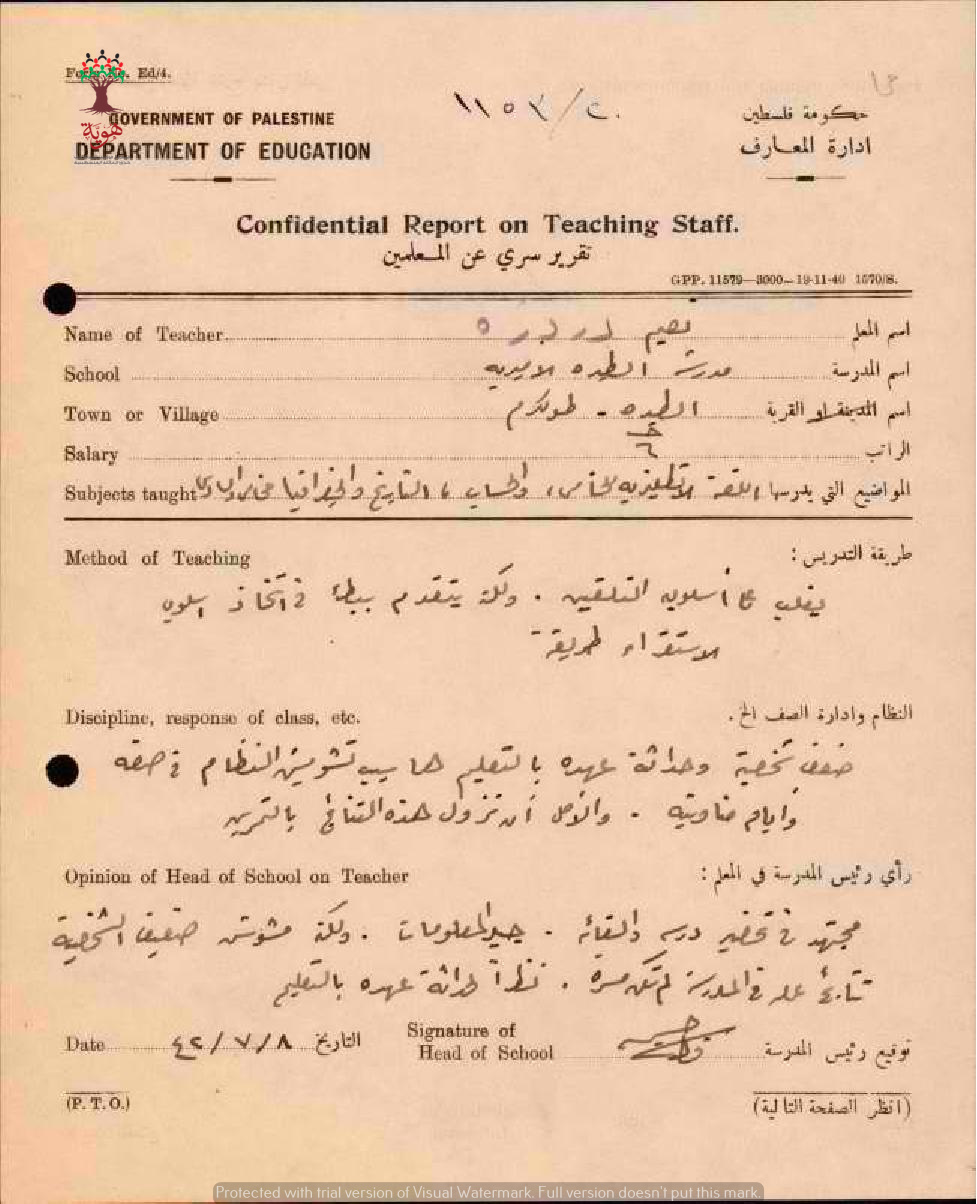 Ed/4.
هوية
GOVERNMENT OF PALESTINE
DEPARTMENT OF EDUCATION
١١٥٣/٢٠
حكومة فلسطين
ادارة المعارف
Confidential Report on Teaching Staff.
تقرير سري عن المعلمين
GPP. 11579—3000—19-11-40 1670/S.
Name of Teacher نصيم اسم المعلم
School مدرسة الطيره الاميريه اسم المدرسة
Town or Village الطيره - طولكرم اسم المدينة او القرية
Salary الراتب
Subjects taught المواضيع التي يدرسها اللغة الانكليزيه للخامس، والحساب والتاريخ والجغرافيا
Method of Teaching طريقة التدريس :
يغلب أسلوب التلقين . ولكنه يتقدم ببطئ في اتخاذ اسلوب
الاستقراء طريقة
Discipline, response of class, etc. النظام وادارة الصف الخ .
ضعف شخصية وحداثة عهده بالتعليم هما سبب تشويش النظام في صفه
وايام مناوبته . والأمل أن تزول هذه النقائص بالتمرين
Opinion of Head of School on Teacher رأي رئيس المدرسة في المعلم :
مجتهد في تحضير درسه والقائه . جيد المعلومات . ولكنه مشوش ضعيف الشخصية
نتائج عمله في المدرسة لم تكن مسرة . نظراً لحداثة عهده بالتعليم
Date ٤٢/٧/٨ التاريخ Signature of Head of School توقيع رئيس المدرسة
(P. T. O.) (انظر الصفحة التالية)
Protected with trial version of Visual Watermark. Full version doesn't put this mark.